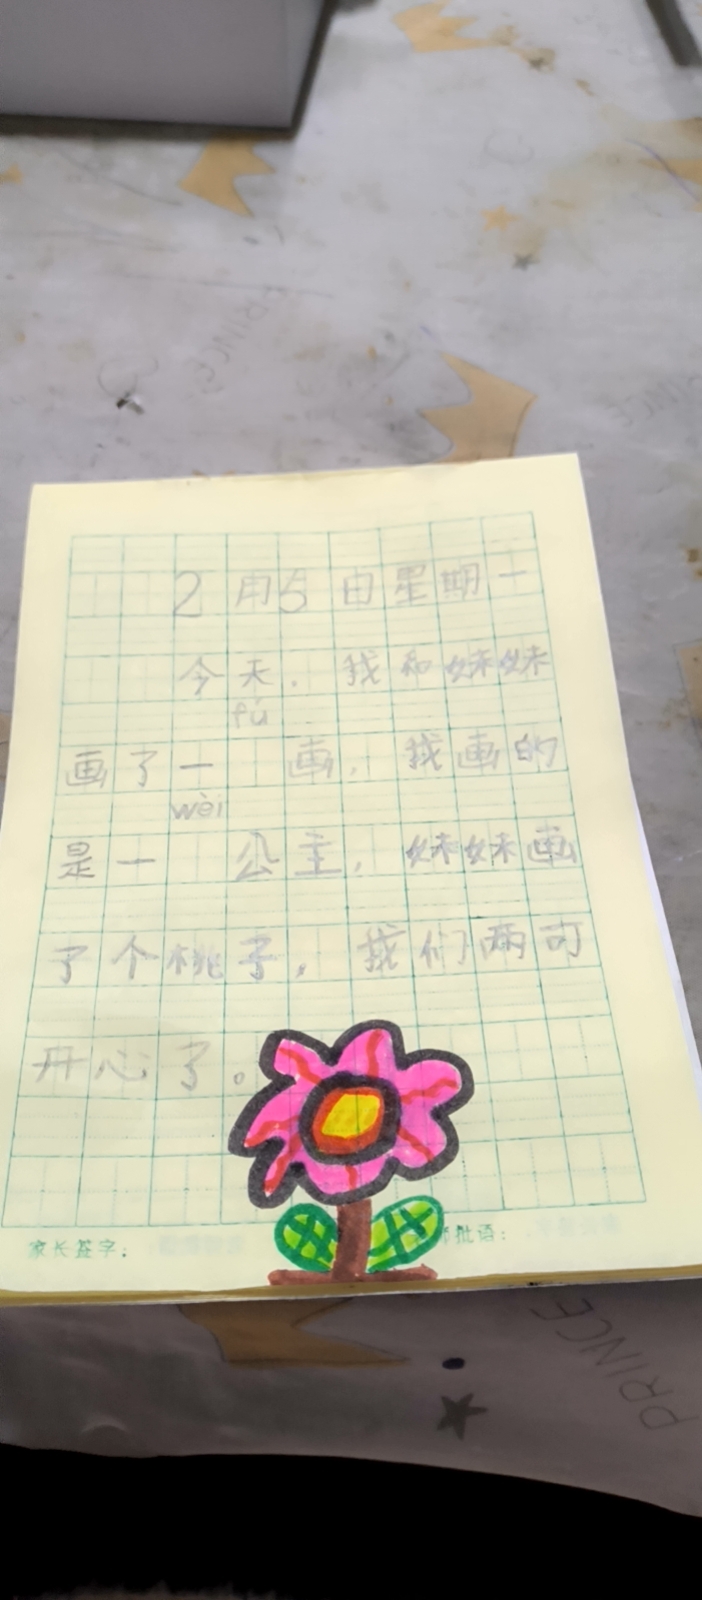 PRINCE
2月5日星期一
今天，我和妹妹
fú
画了一 画，我画的
wèi
是一 公主，妹妹画
了个桃子，我们两可
开心了。
家长签字： 师批语：
PRINCE